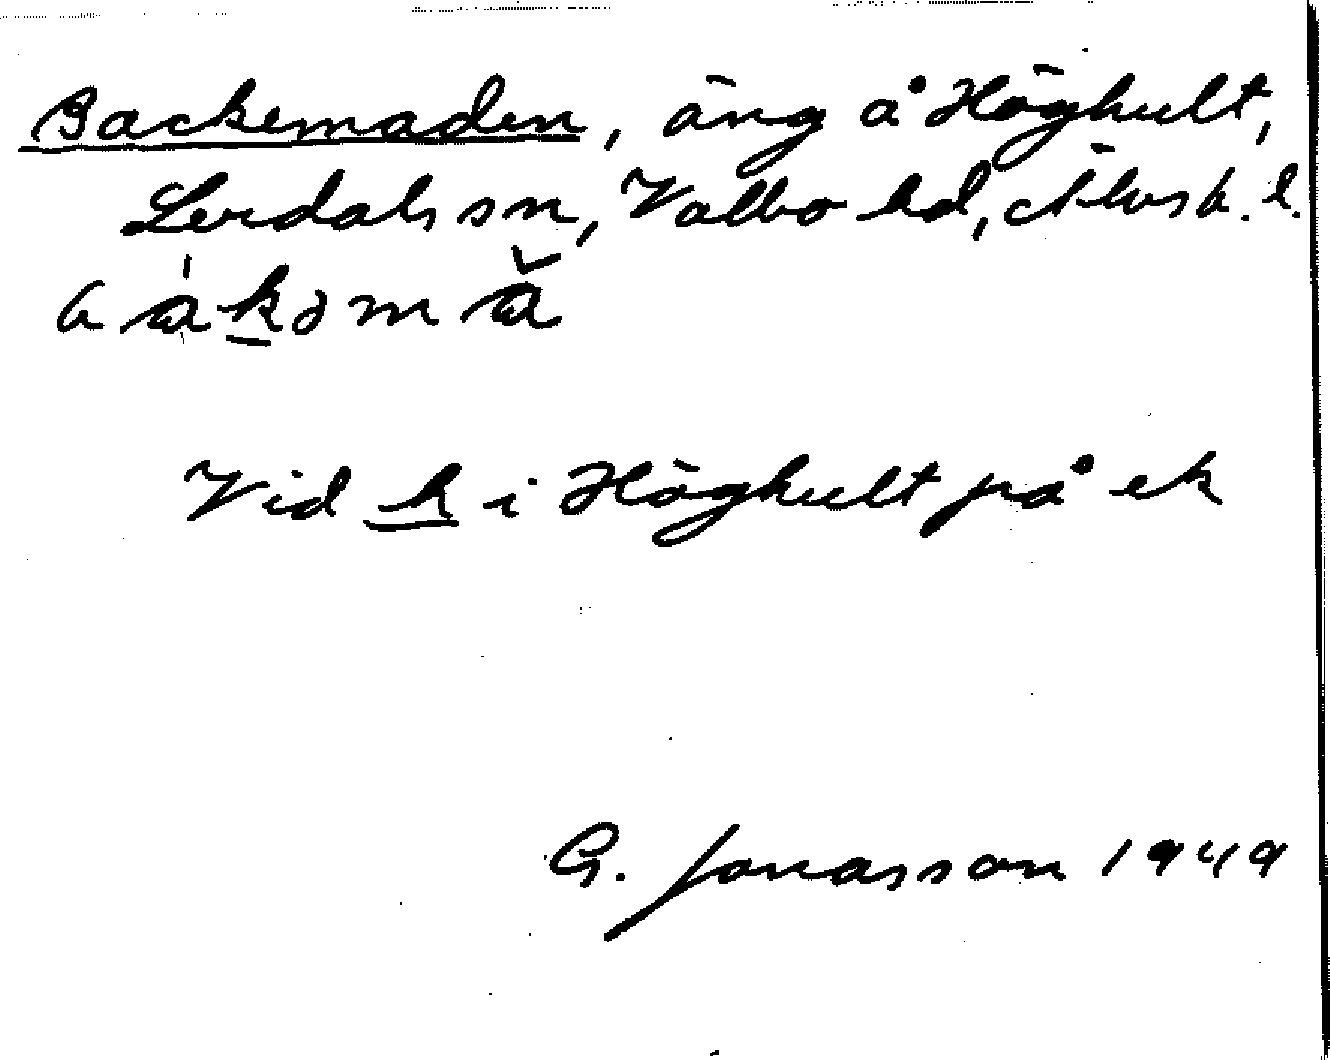 Backemaden, äng å Höghult,
Lerdals sn, Valbo hd, Älvsb. l.
Vid h i Höghult på ek
G. Jonasson 1949